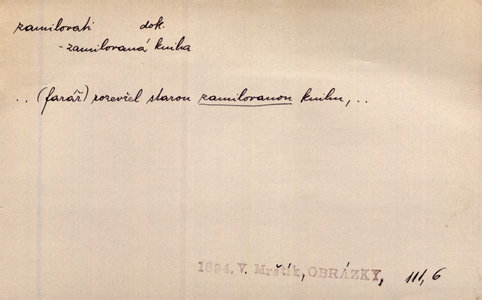 zamilovati dok.
- zamilovaná kniha
.. (farář) rozevřel starou zamilovanou knihu, ..
1894, V. Mrštík, OBRÁZKY, 111, 6